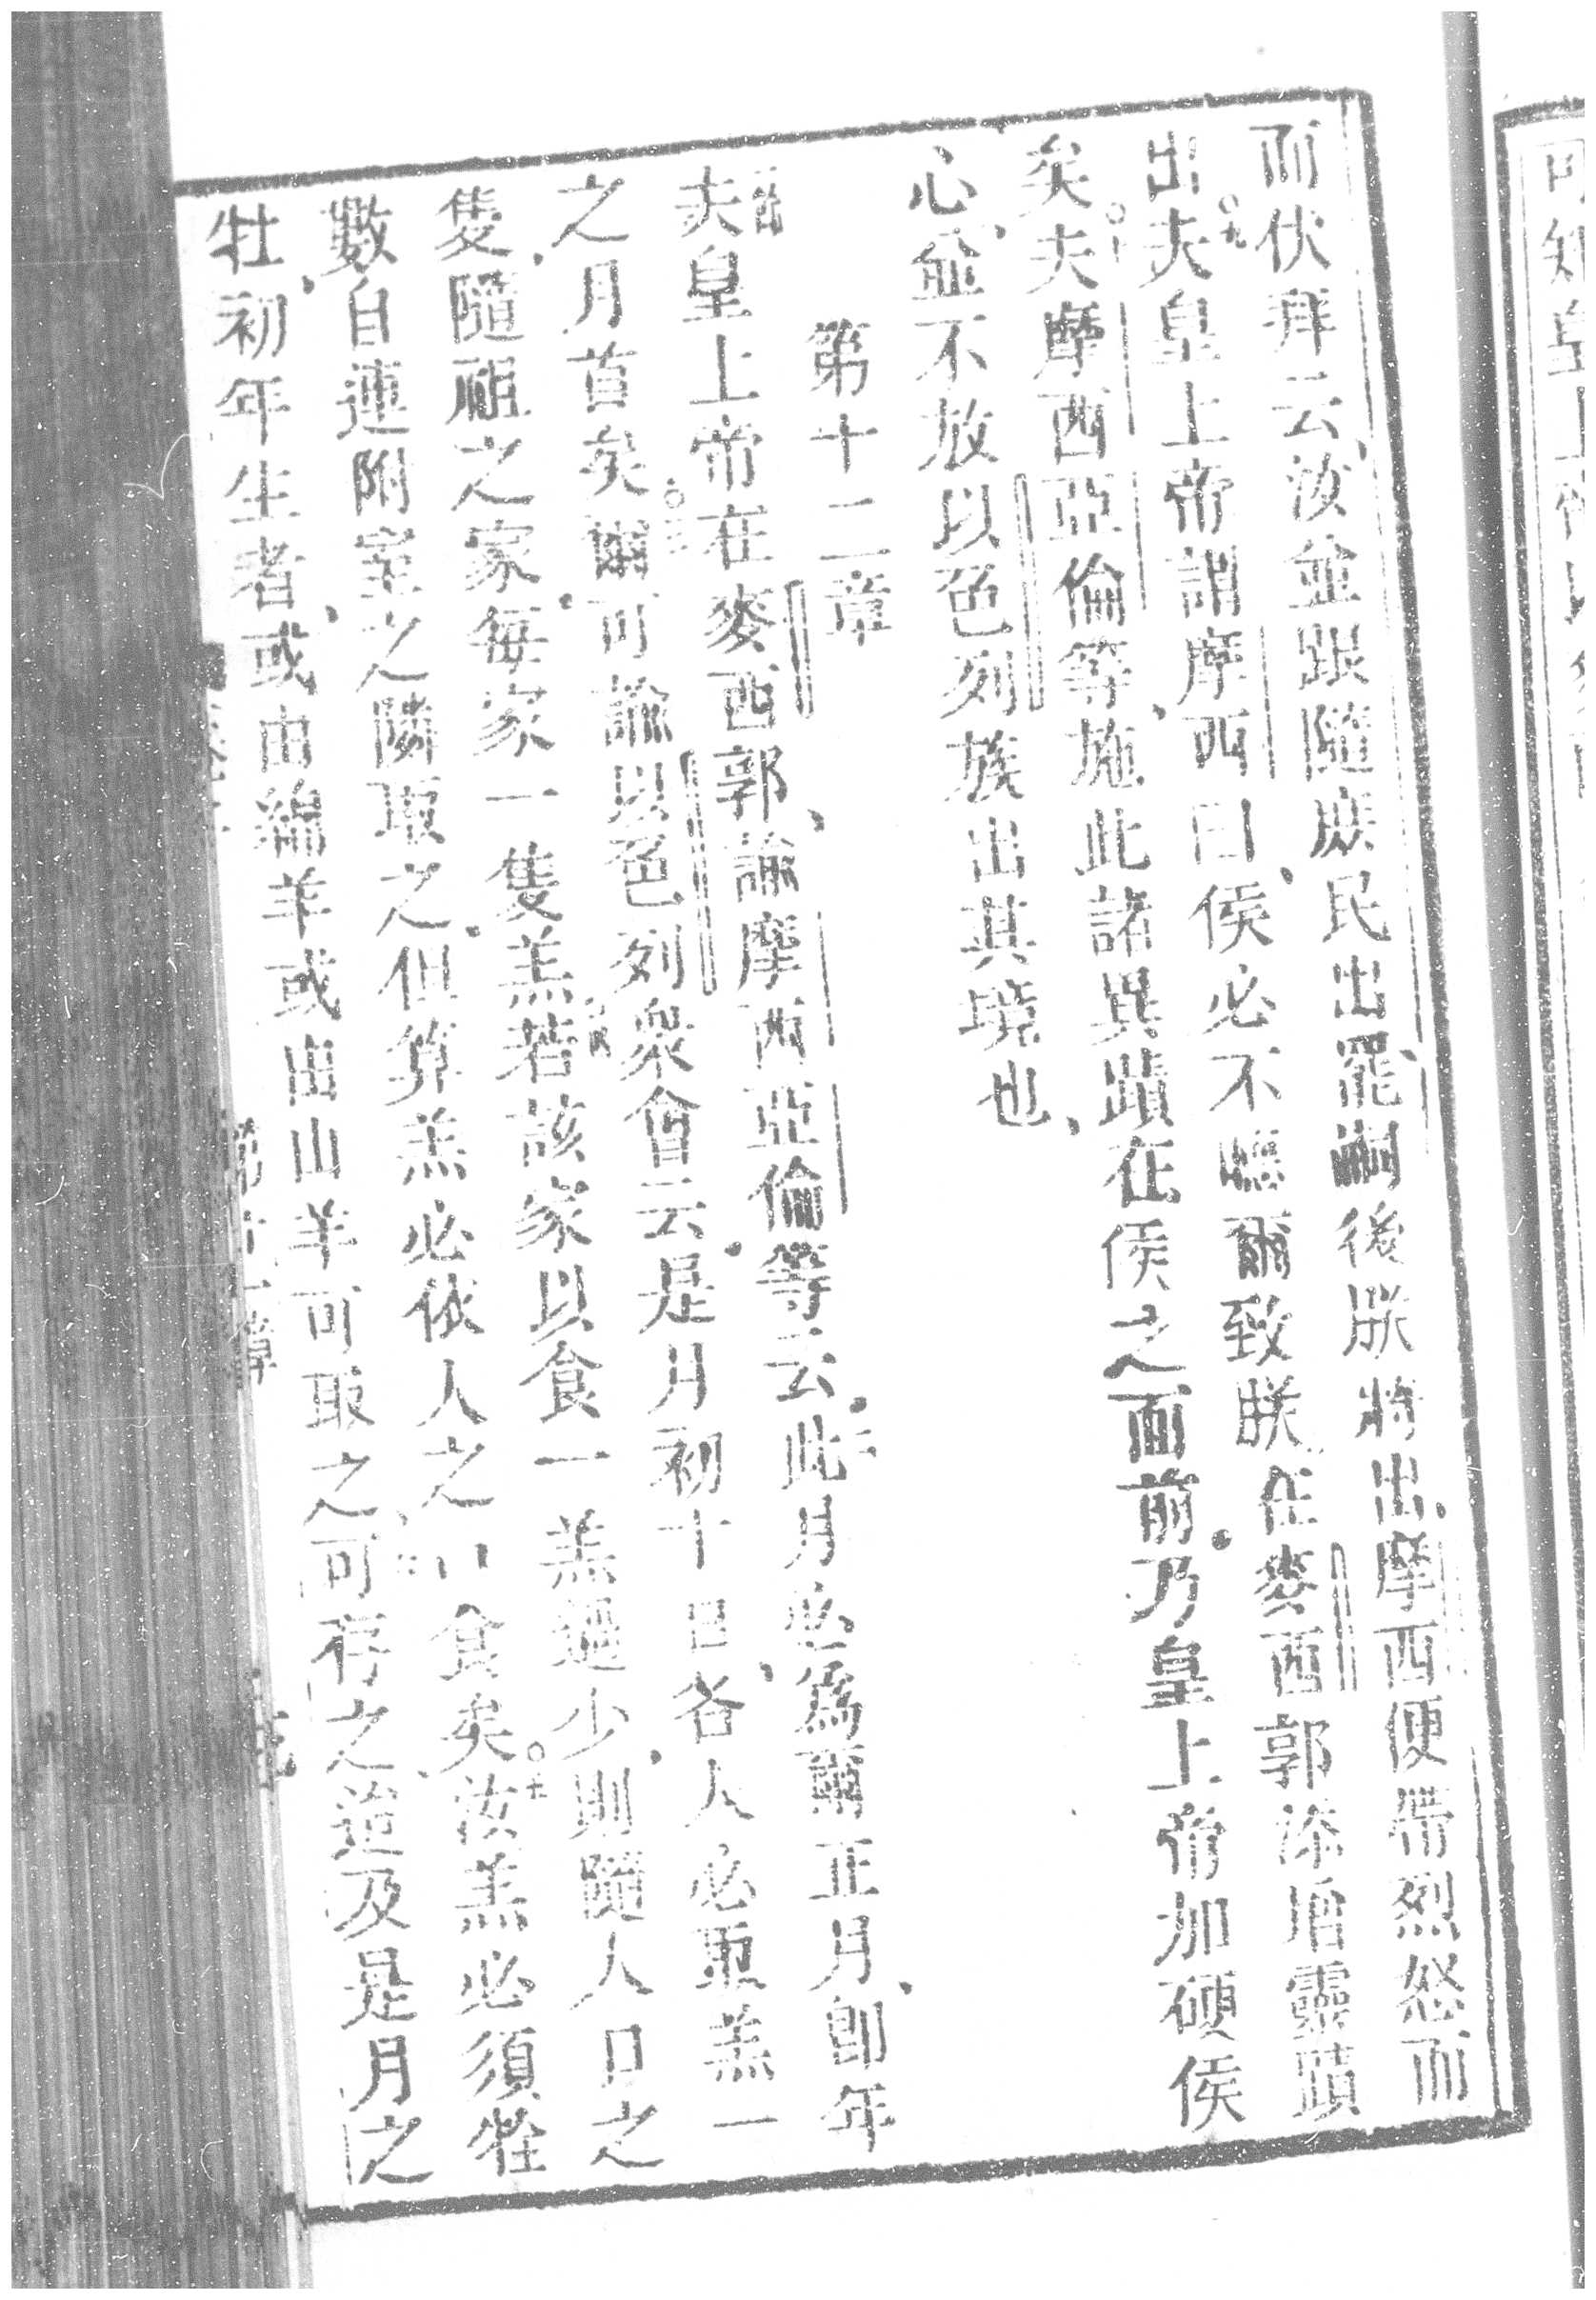 而伏拜云、汝並跟隨庶民出罷嗣後朕將出、摩西便帶烈怒而
出。夫皇上帝謂摩西曰、侯必不聽爾致朕在麥西郭添增靈蹟
矣。夫摩西亞倫等、施此諸異蹟在侯之面前、乃皇上帝加硬侯
心、並不放以色列族出其境也、
第十二章
夫皇上帝在麥西郭、諭摩西亞倫等云、此月必為爾正月、即年
之月首矣。爾可諭以色列眾會云、是月初十日、各人必取羔一
隻、隨祖之家、每家一隻羔、若該家以食一羔過少、則隨人口之
數、自連附室之隣取之、但算羔必依人之、口食矣。汝羔必須牷
牡、初年生者、或由綿羊或由山羊可取之、可存之迨及是月之